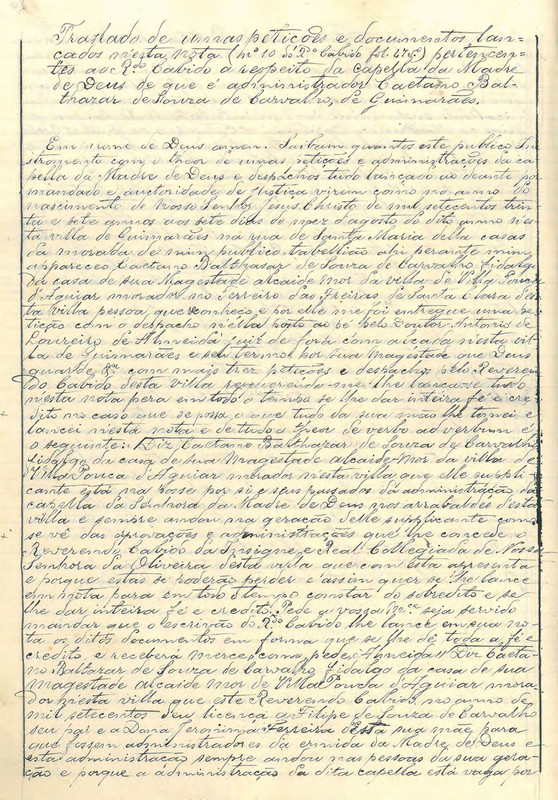 Traslado de umas petições e documentos lan-
cados nesta nota (nº 10 do Rdo Cabido fol. 47 vº) pertencen-
tes ao Rdo Cabido a respeito da capella da Madre
de Deus de que é administrador Caetano Bal-
thazar de Souza de Carvalho, de Guimarães.
Em nome de Deus amen. Saibam quantos este publico In
stromento com o theor de umas petições e administrações da ca
pella da Madre de Deus e despachos tudo lançado ao deante por
mandado e auctoridade de Justiça virem como no anno do
nascimento de Nosso Senhor Jesus Christo de mil setecentos trin
ta e sete annos aos sete dias do mez d'agosto do dito anno nes
ta villa de Guimarães na rua de Santa Maria della casas
da morada de mim publico tabellião ahi perante mim
appareceu Caetano Balthasar de Souza de Carvalho fidalgo
da casa de sua Magestade alcaide mor da villa de Villa Pouca
d'Aguiar morador no Terreiro das Freiras de Santa Clara des
ta villa pessoa que conheço e por elle me foi entregue uma pe
tição com o despacho nella posto ao pé pelo Doutor Antonio de
Loureiro de Almeida Juiz de fora com alçada nesta vil
la de Guimarães e seu termo por sua Magestade que Deus
guarde &ª com mais trez petições e despachos pelo Reveren
do Cabido desta villa requerendo-me lhe lançasse tudo
nesta nota pera em todo o tempo se lhe dar inteira fé e cre
dito no caso que se possa, o que tudo da sua mão lhe tomei e
lancei nesta nota e de tudo o theor de verbo ad verbum é
o seguinte: Diz Caetano Balthazar de Souza de Carvalho
fidalgo da casa de sua Magestade alcaide-mor da villa de
Villa Pouca d'Aguiar morador nesta villa que elle suppli-
cante está na posse por si e seus passados da administração da
capella da Senhora da Madre de Deus nos arrabaldes desta
villa e sempre andou na geração delle supplicante como
se vê das aprovações e administrações que lhe concede o
Reverendo Cabido da Insigne e Real Collegiada de Nossa
Senhora da Oliveira desta villa que com esta apresenta
e porque estas se poderão perder e assim quer se lhe lance
em nota para em todo o tempo constar do sobredito e se
lhe dar inteira fé e credito. Pede a vossa Mcê seja servido
mandar que o escrivão do Rdo Cabido lhe lance em sua no-
ta os ditos documentos em forma que se lhe dê toda a fé e
credito e receberá Merce, como pede, Almeida // Diz Caeta-
no Baltazar de Souza de Carvalho fidalgo da casa de sua
Magestade alcaide mor de Villa Pouca d'Aguiar mora
dor nesta villa que este Reverendo Cabido no anno de
mil setecentos deu licença a Filipe de Souza de Carvalho
seu pai e a Dona Jeronima Ferreira desta sua mãe para
que fossem administradores da ermida da Madre de Deus e
esta administração sempre andou nas pessoas da sua gera-
ção e porque a administração da dita capella está vaga por